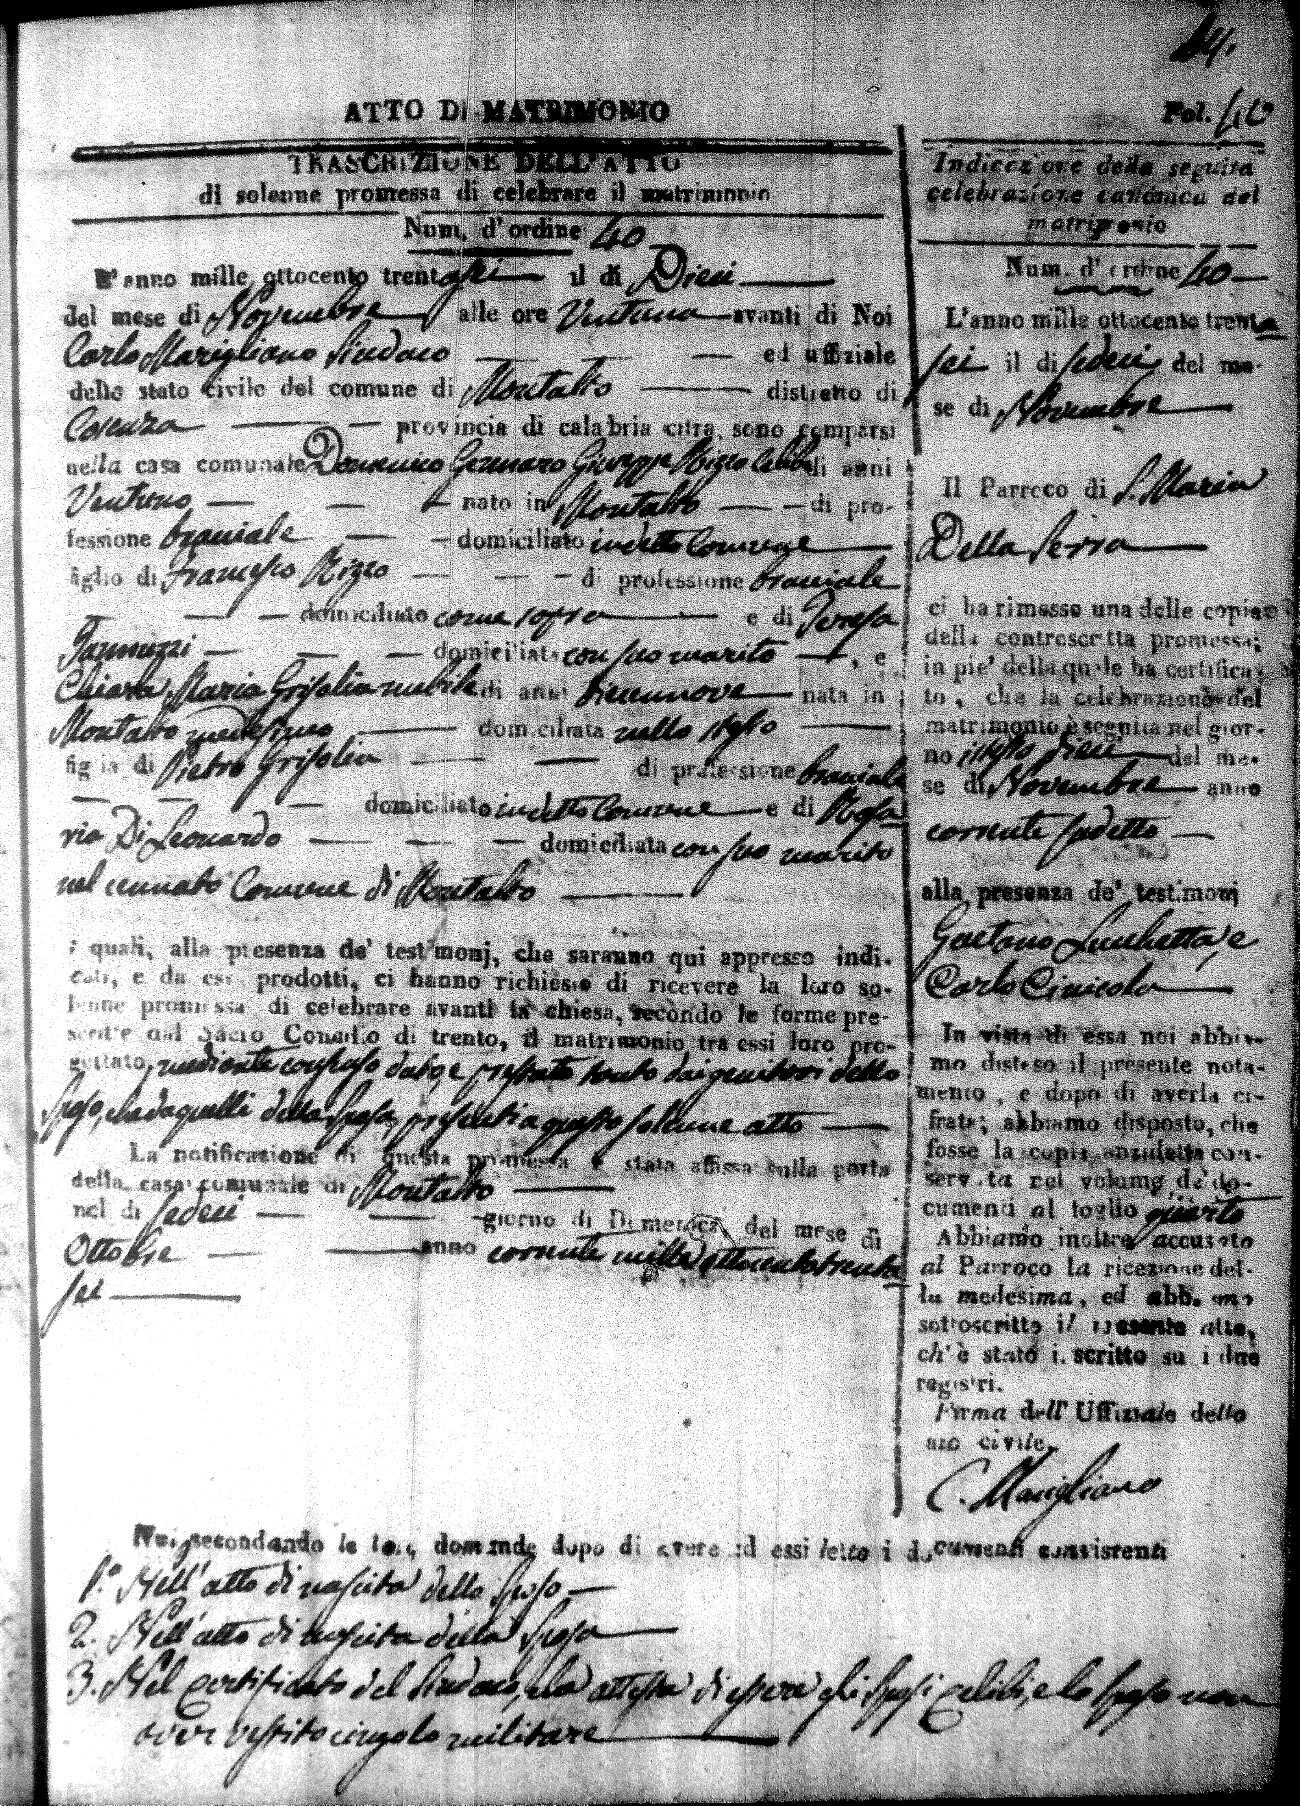 ATTO DI MATRIMONIO
Fol. 40
TRASCRIZIONE DELL'ATTO
di solenne promessa di celebrare il matrimonio
Num. d'ordine 40
L'anno mille ottocento trentasei il di Dieci
del mese di Novembre alle ore Ventuna avanti di Noi
Carlo Marigliano Sindaco ed uffiziale
dello stato civile del comune di Montalto distretto di
Cosenza provincia di calabria citra, sono comparsi
nella casa comunale Domenico Gennaro Giuseppe Rizzo Celibe di anni
Ventuno nato in Montalto di pro-
fessione bracciale domiciliato in detto Comune
figlio di Francesco Rizzo di professione bracciale
domiciliato come sopra e di Teresa
Jannuzzi domiciliata con suo marito, e
Chiara Maria Grisolia nubile di anni diecinnove nata in
Montalto medesimo domiciliata nello stesso
figlia di Pietro Grisolia di professione bracciale
domiciliato in detto Comune e di Rosa
ria Di Leonardo domiciliata con suo marito
nel cennato Comune di Montalto
i quali, alla presenza de' testimonj, che saranno qui appresso indi-
cati, e da essi prodotti, ci hanno richiesto di ricevere la loro so-
lenne promessa di celebrare avanti la chiesa, secondo le forme pre-
scritte dal Sacro Concilio di trento, il matrimonio tra essi loro pro-
gettato, mediante consenso dato, e prestato tanto dai genitori dello
Sposo, che da quelli della Sposa, presenti a questo solenne atto
La notificazione di questa promessa è stata affissa sulla porta
della casa comunale di Montalto
nel di sedici giorno di Domenica del mese di
Ottobre anno corrente mille ottocento trenta
sei
Indicazione della seguita
celebrazione canonica del
matrimonio
Num. d'ordine 40
L'anno mille ottocento trenta
sei il di sedeci del me-
se di Novembre
Il Parroco di S. Maria
Della Serra
ci ha rimesso una delle copie
della controscritta promessa;
in piè della quale ha certifica-
to, che la celebrazione del
matrimonio è seguita nel gior-
no istesso dieci del me-
se di Novembre anno
corrente sudetto
alla presenza de' testimonj
Gaetano Lucchetta, e
Carlo Cinicola
In vista di essa noi abbia-
mo disteso il presente nota-
mento, e dopo di averla ci-
frata; abbiamo disposto, che
fosse la copia anzidetta con-
servata nel volume de' do-
cumenti al foglio quarto
Abbiamo inoltre accusato
al Parroco la ricezione del-
la medesima, ed abbiamo
sottoscritto il presente atto,
ch'è stato iscritto su i due
registri.
Firma dell'Uffiziale dello
stato civile
C. Marigliano
Noi secondando le loro domande dopo di avere ad essi letto i documenti consistenti
1.° Nell'atto di nascita dello Sposo
2. Nell'atto di nascita della Sposa
3. Nel Certificato del Sindaco, che attesta di essere gli Sposi Celibi, e lo Sposo non
aver vestito cingolo militare